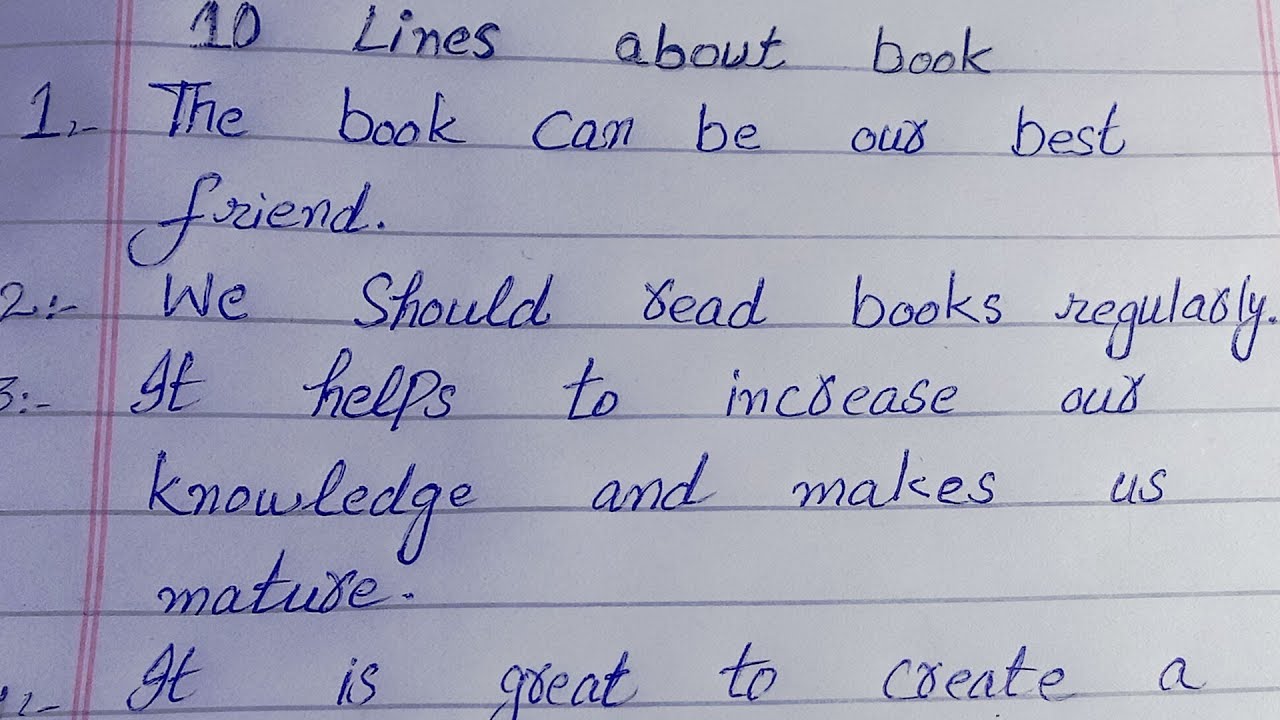 10 Lines about book
1,- The book can be our best
friend.
2:- We Should read books regularly.
3:- It helps to increase our
knowledge and makes us
mature.
It is great to create a